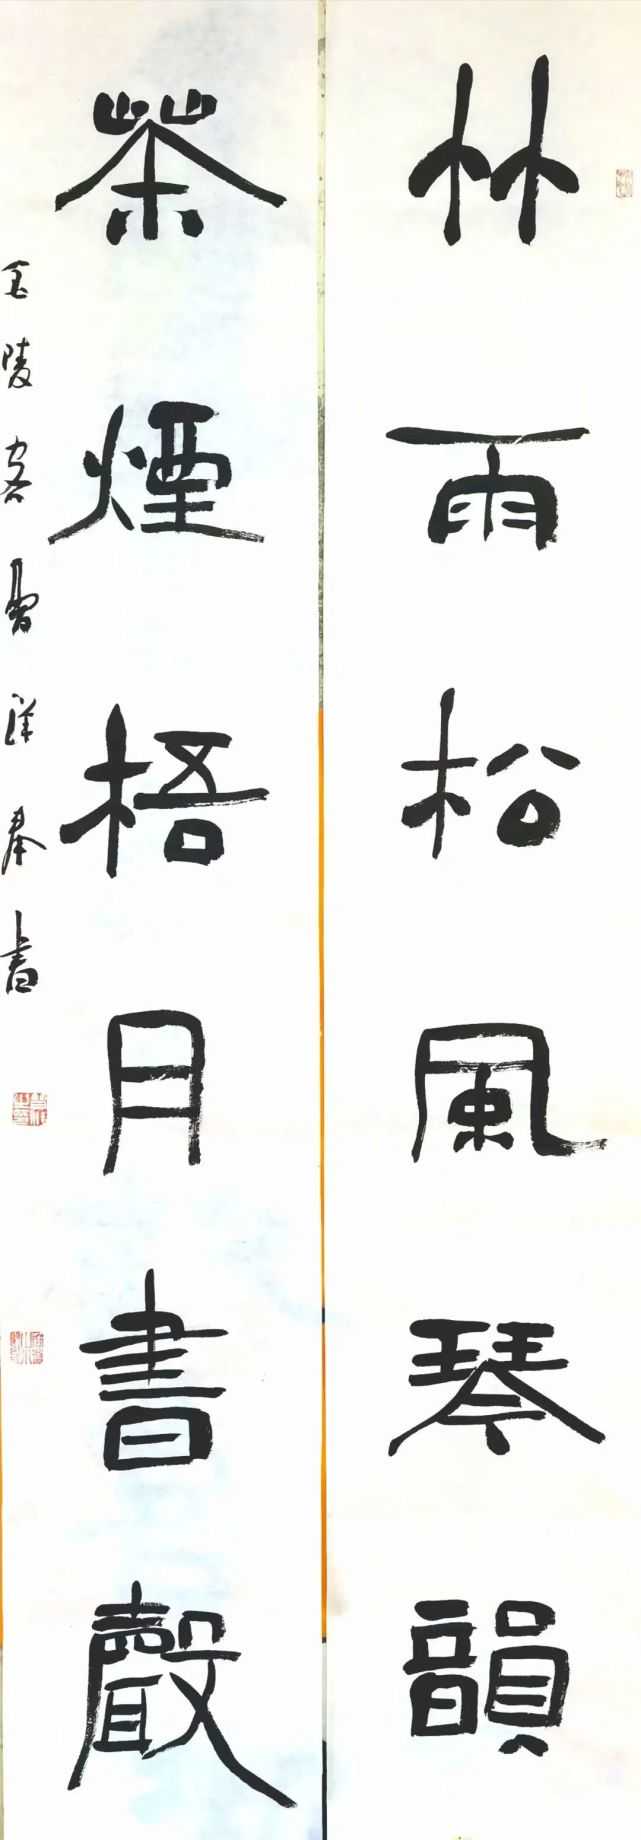 竹雨松風琴韻
茶煙梧月書聲
金陵客 奉書